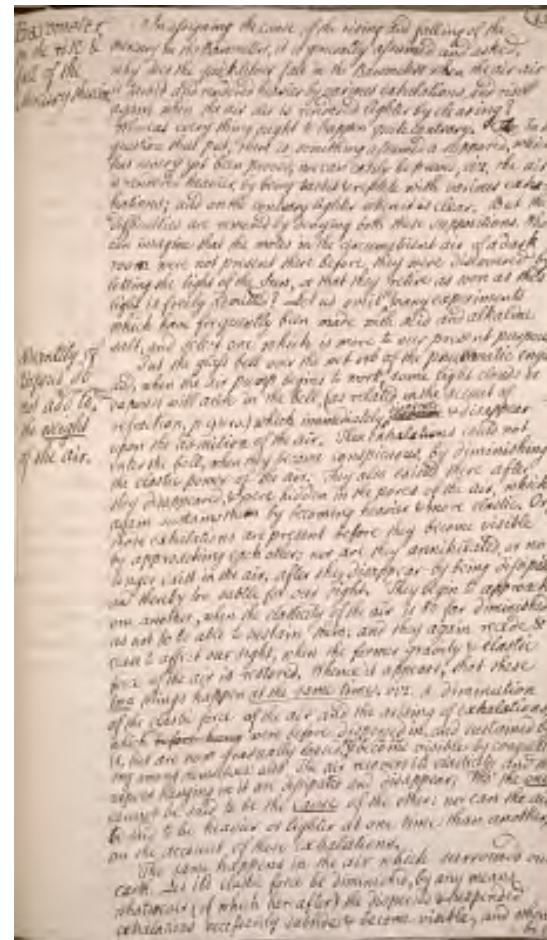 Barometer
on the rise &
fall of the
Mercury therein
In assigning the cause of the rising and falling of the
mercury in the Barometer, it is generally assumed and asked,
why does the quicksilver fall in the Barometer when the air
is and rendered heavier by various exhalations, and rises
again when the air is rendered lighter by clearing?
Whereas every thing ought to happen quite contrary. In
question thus put, there is something assumed & supposed, which
has never yet been proved, nor can easily be proved, viz. the air
is rendered heavier, by being & replete with various exha-
lations; and on the contrary lighter when it is clear. But the
difficulties are removed by denying both these suppositions. Who
can imagine that the motes in the circumambient air of a dark
room were not present there before they were discovered by
letting the light of the Sun, or that they retire as soon as the
light is freely admitted? Let us omit many experiments
which have frequently been made with acid and alkaline
salt, and select one which is more to our present purpose
Quantity of
vapours do
not add to
the weight
of the air.
Put the glass bell over the wet orb of the pneumatic engine
and, when the air pump begins to work, some light clouds or
vapours will arise in the bell (as related in the account of
refraction, ) which immediately & disappear
upon the admission of the air. These exhalations could not
enter the bell, when they became conspicuous, by diminishing
the elastic power of the air. They also existed there after
they disappeared, & were hidden in the pores of the air, which
again sustains them by becoming heavier & more elastic. Or
those exhalations are present before they become visible
by approaching each other; nor are they annihilated, or no
longer exist in the air, after they disappear by being dissipated
and thereby too subtle for our sight. They begin to approach
one another, when the elasticity of the air is so far diminished
as not to be able to sustain them; and they again recede &
cease to affect our sight, when the former gravity & elastic
force of the air is restored. Whence it appears, that these
two things happen at the same time, viz. a diminution
of the elastic force of the air and the arising of exhalations,
which were before dispersed in, and sustained by
it, but are now gradually become visible by
among themselves and the air recovers its elasticity and
vapours hanging in it are dissipated and disappear; the one
cannot be said to be the cause of the other: nor can the air
be said to be heavier or lighter at one time than another,
on the account of these exhalations.
The same happens in the air which surrounds our
earth. Let its elastic force be diminished, by any means
whatsoever, (of which hereafter) the dispersed & suspended
exhalations necessarily subside & become visible, and